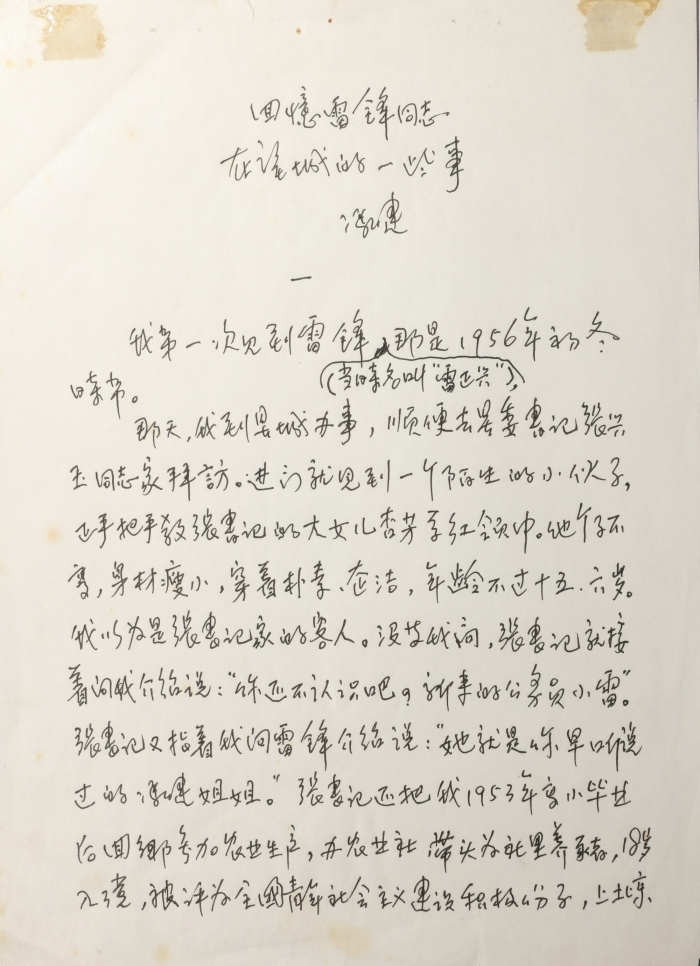 回憶雷锋同志
在望城的一些事
冯健
一
我第一次见到雷锋，那是1956年初冬
(当時名叫"雷正兴")，
時节。
那天，我到县城办事，顺便去县委書记張兴
玉同志家拜訪。进门就见到一个陌生的小伙子，
正手把手教張書记的大女儿杏芳系红领巾。他个子不
高，身材瘦小，穿着朴素、整洁，年龄不过十五、六岁。
我以为是張書记家的客人。没等我问，張書记就接
着向我介绍说："你还不认识吧？新来的公务员小雷"。
張書记又指着我向雷锋介绍说："她就是你早听说
过的冯健姐姐。"張書记还把我1953年高小毕业
后回鄉参加农业生产，办农业社，带头为社里养豬，18岁
入党，被评为全國青年社会主义建设积极份子，上北京、